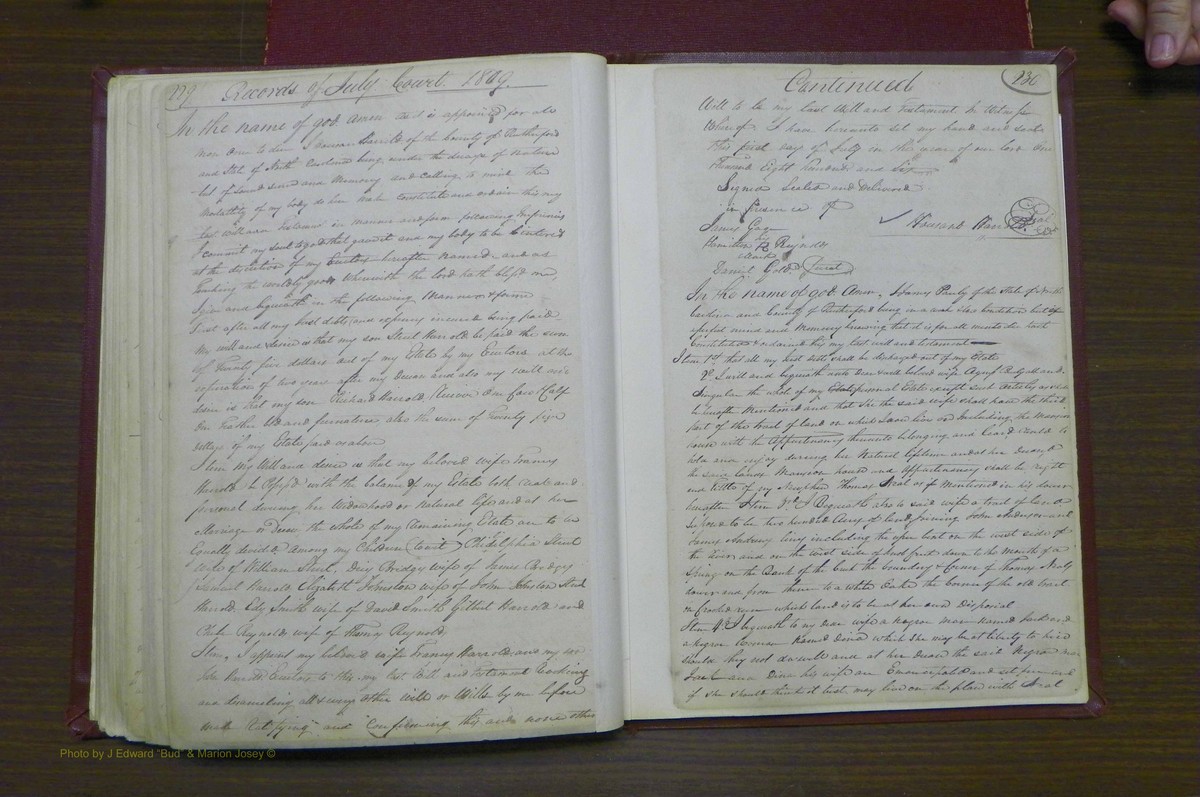 129 Records of July Court 1809.
In the name of god amen as it is appointed for all
men once to die I Howard Harrold of the County of Rutherford
and State of North Carolina being under the decays of Nature
but of Sound mind and Memory and calling to mind the
Mortallity of my body do here make Constitute and ordain this my
last will and Testament in manner and form following Imprimis
I commit my Soul to god that gave it and my body to be Entered
at the discretion of my Exutors hereafter named and as
Touching the worldly goods wherewith the lord hath blest me,
I give and bequeath in the following Manner & form
First after all my Just debts and expences incured being paid
My will and desire is that my son Sturd Harrold be paid the sum
of Twenty five dollars out of my Estate by my Exutors at the
expiration of two years after my Decease and also my will and
desire is that my son Richard Harrold Receive One Cow & Calf
One Feather bed and furniture also the sum of Twenty five
dollars of my Estate paid as above
Item My Will and desire is that my beloved wife Franny
Harrold be Possesd with the balance of my Estate both real and
personal during her widowhood or Natural life and at her
Marriage or Decease the whole of my Remaining Estate are to be
Equally devided among my Children (towit) Philadelphia Sturd
wife of William Sturd, Darcy Bridgs wife of James Bridges
Samuel Harrold Elizabeth Johnston wife of John Johnston
Harrold, Edy Smith wife of David Smith Gilbert Harrold and
Reynolds wife of Henry Reynolds
Item, I appoint my beloved wife Franny Harrold and my son
Harrold Exutors to this my last Will and Testament Revoking
and disannuling all & every other will or Wills by me before
made Ratifying and Confirming this and none other
Continued 130
Will to be my last Will and Testament In Witness
Whereof I have hereunto set my hand and seal
This first day of July in the year of our lord One
Thousand Eight hundred and Six
Signed Sealed and Delivered
in presence of
Howard Harrold Seal
James
his
Hamilton R Reynolds
mark
Daniel Gold Jurat
In the name of god Amen, I Harry Painty of the State of North
Carolina and County of Rutherford being in a weak State but of
perfect mind and Memory knowing that it is for all men to die hath
Constituted & ordained this my last will and testament
Item 1st that all my Just debts shall be discharged out of my Estate
2d I will and bequeath unto Dear & well beloved wife all and
Singular the whole of my Estate personal Estate except such articles as
hereafter Mentioned and that the said wife shall have the third
part of the tract of land on which I now live on Including the Mansion
house with the Appurtenancy thereunto belonging and
hold and enjoy during her Natural lifetime and at her Decease
the same lands Mansion house and Appurtenancy shall be right
and Title of my Nephew Thomas Neal as is Mentioned in his
hereafter Item 3d I Bequeath also to said wife a tract of land
Suposed to be two hundred Acres of land joining John Anderson and
Andrews lines including the upper on the west side of
the River and on the west side of down to the Mouth of a
Spring on the Bank of the Creek the boundary & Corner of Thomas Neals
dower and from thence to a White Oak the Corner of the old tract
on Crooked run which land is to be at her own Disposial
Item 4th I bequeath to my dear wife a negroe man named Jack and
a Negroe woman named Dina which she may be at liberty to hire
should they not do well and at her decease the said Negroe man
Jack and Dina his wife are Emancipated and set free and
if she should think it best, may live on the place with Neal
Photo by J Edward "Bud" & Marion Josey ©